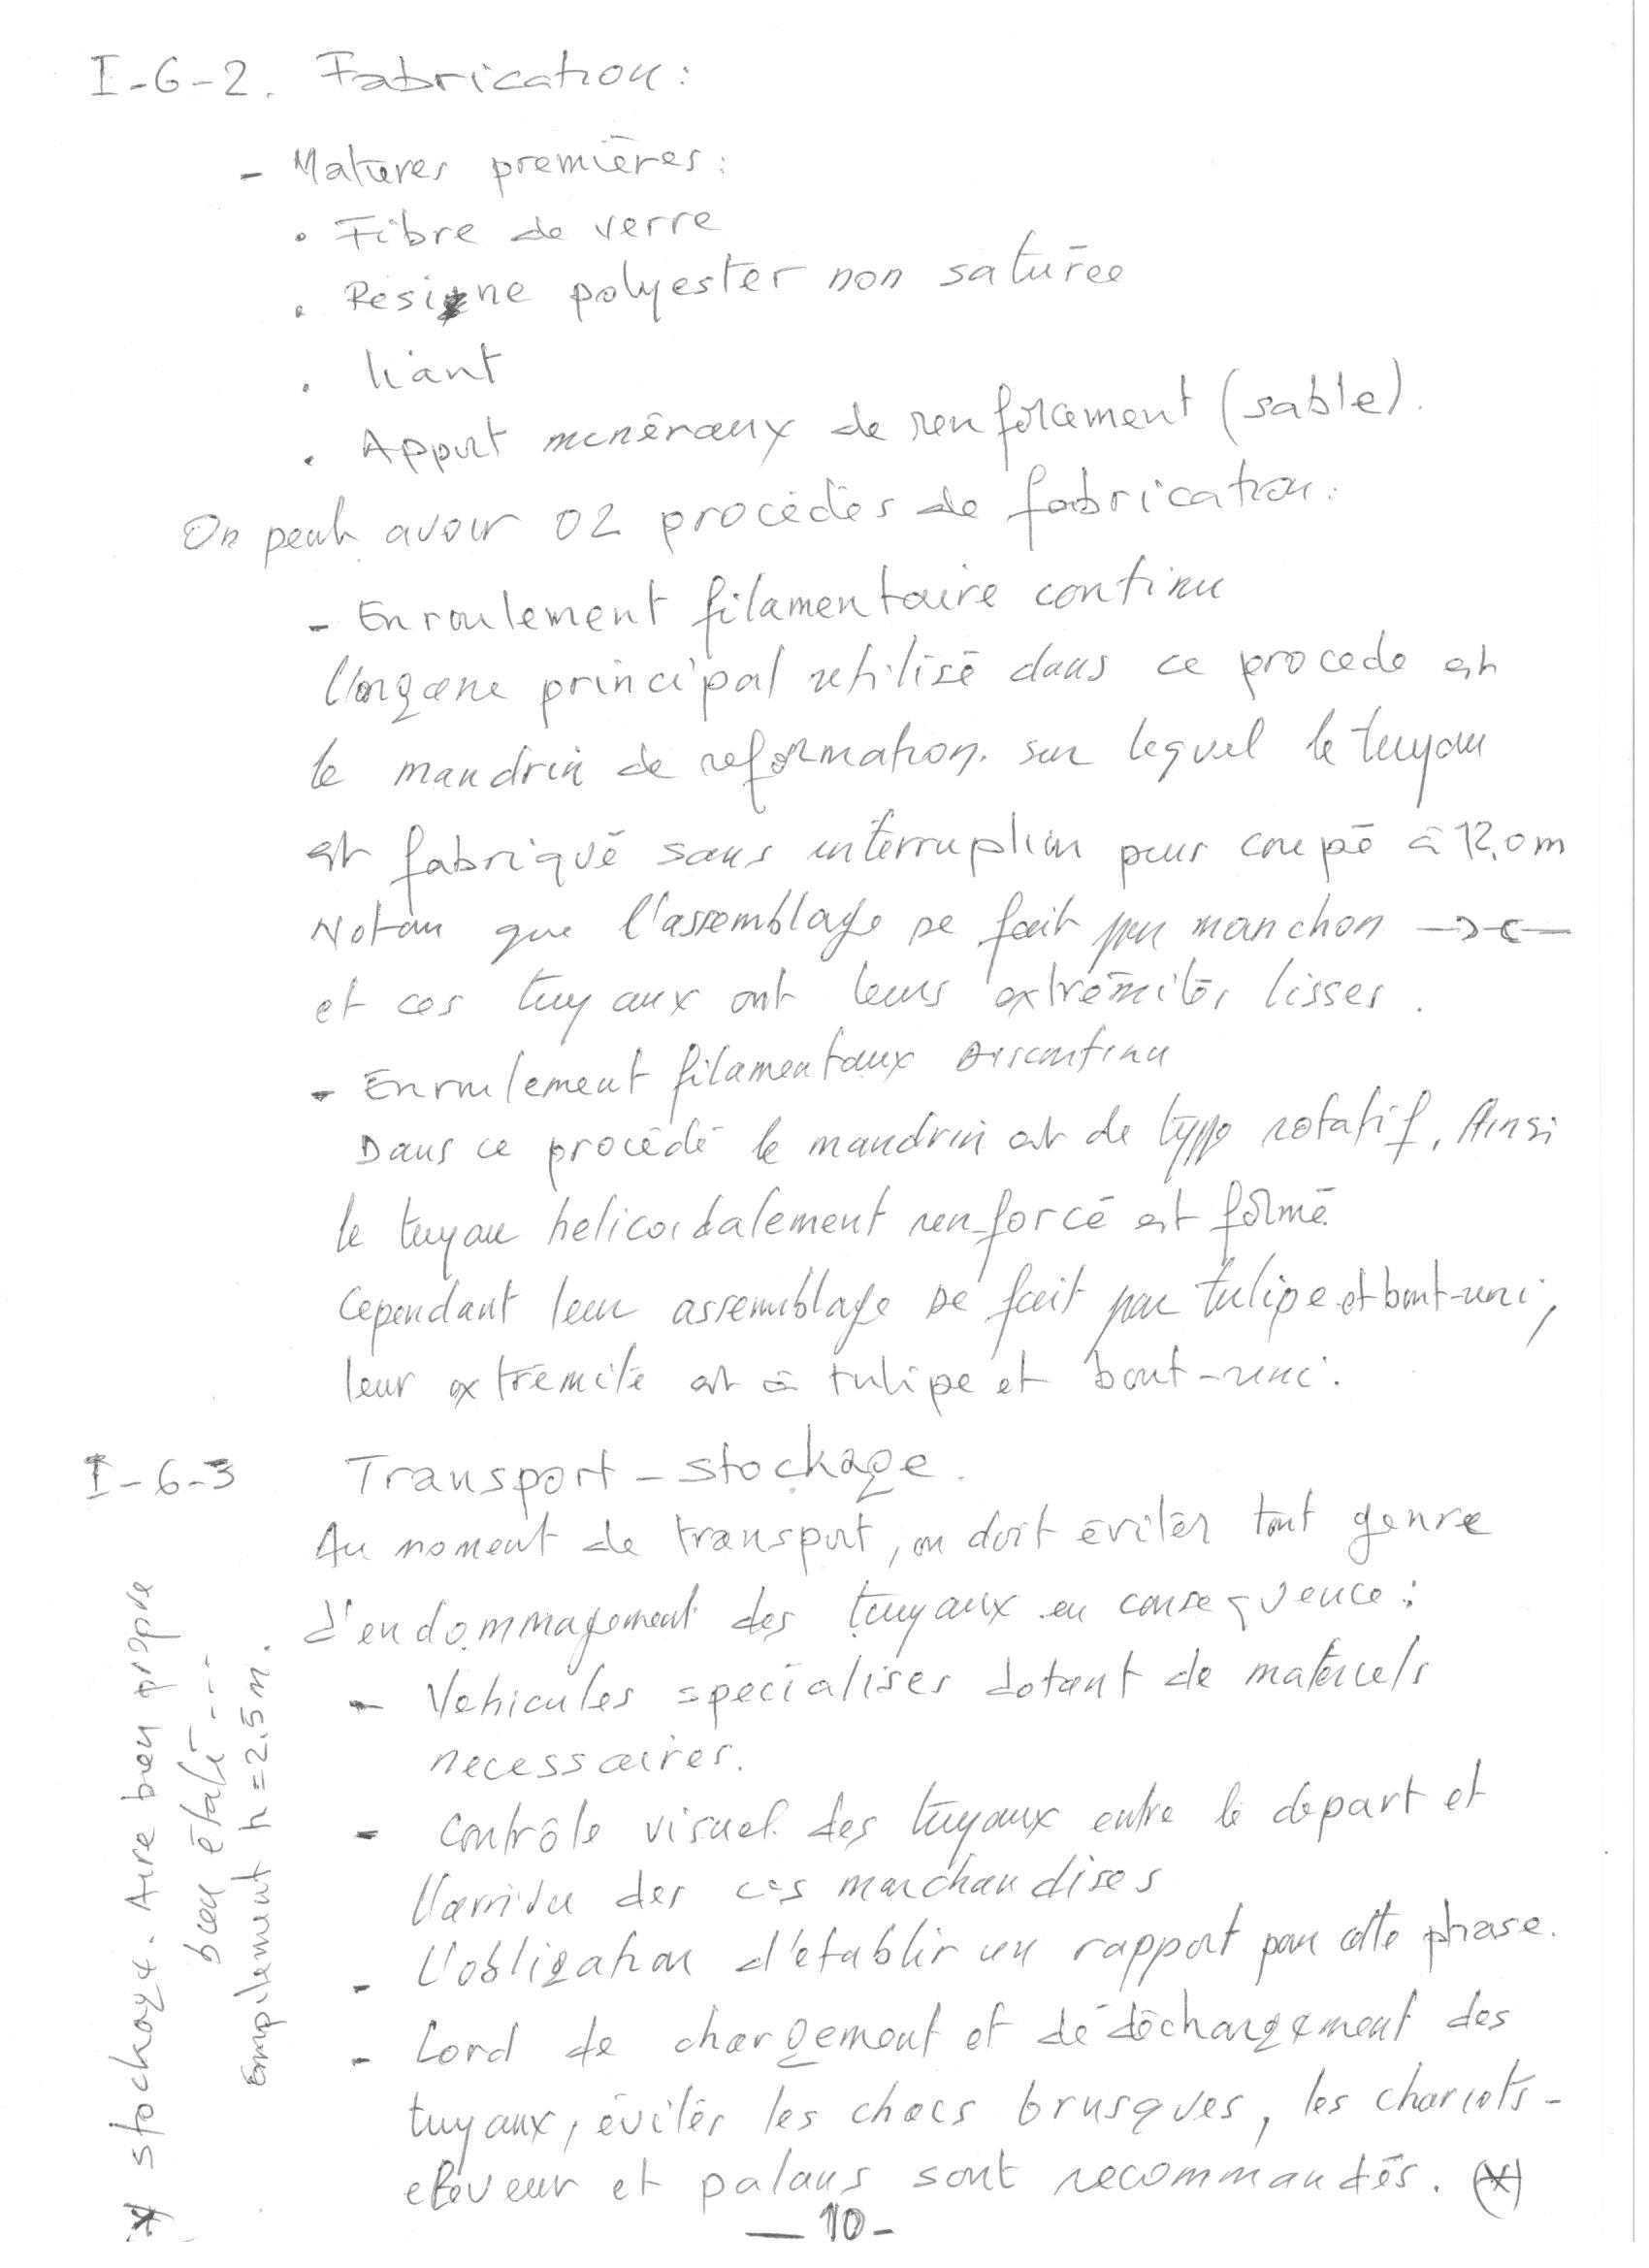 I-6-2. Fabrication :
- Matières premières :
• Fibre de verre
• Resine polyester non saturée
• liant
• Apport minéraux de renforcement (sable).
On peut avoir 02 procédés de fabrication :
- Enroulement filamentaire continu
l'organe principal utilisé dans ce procede est
le mandrin de reformation. sur lequel le tuyau
est fabriqué sans interruption puis coupé à 12,0m
Notan que l'assemblage se fait par manchon
et ces tuyaux ont leurs extrémités lisses.
- Enroulement filamentaux Discontinu
Dans ce procédé le mandrin est de type rotatif. Ainsi
le tuyau helicoidalement renforcé est formé.
Cependant leur assemblage se fait par tulipe et bout-uni,
leur extrémité est à tulipe et bout-uni.
I-6-3 Transport-stockage.
Au moment de transport, on doit éviter tout genre
d'endommagement des tuyaux en consequence :
- Vehicules specialises dotant de materiels
necessaires.
- Contrôle visuel des tuyaux entre le depart et
l'arrivée des ces marchandises
- L'obligation d'établir un rapport par cette phase.
- Lord de chargement et de déchargement des
tuyaux, éviter les chocs brusques, les chariots-
eleveur et palans sont recommandés. (*)
* stockage. Aire bien propre
bien étalé ---
Empilement h = 2,5 m.
- 10 -